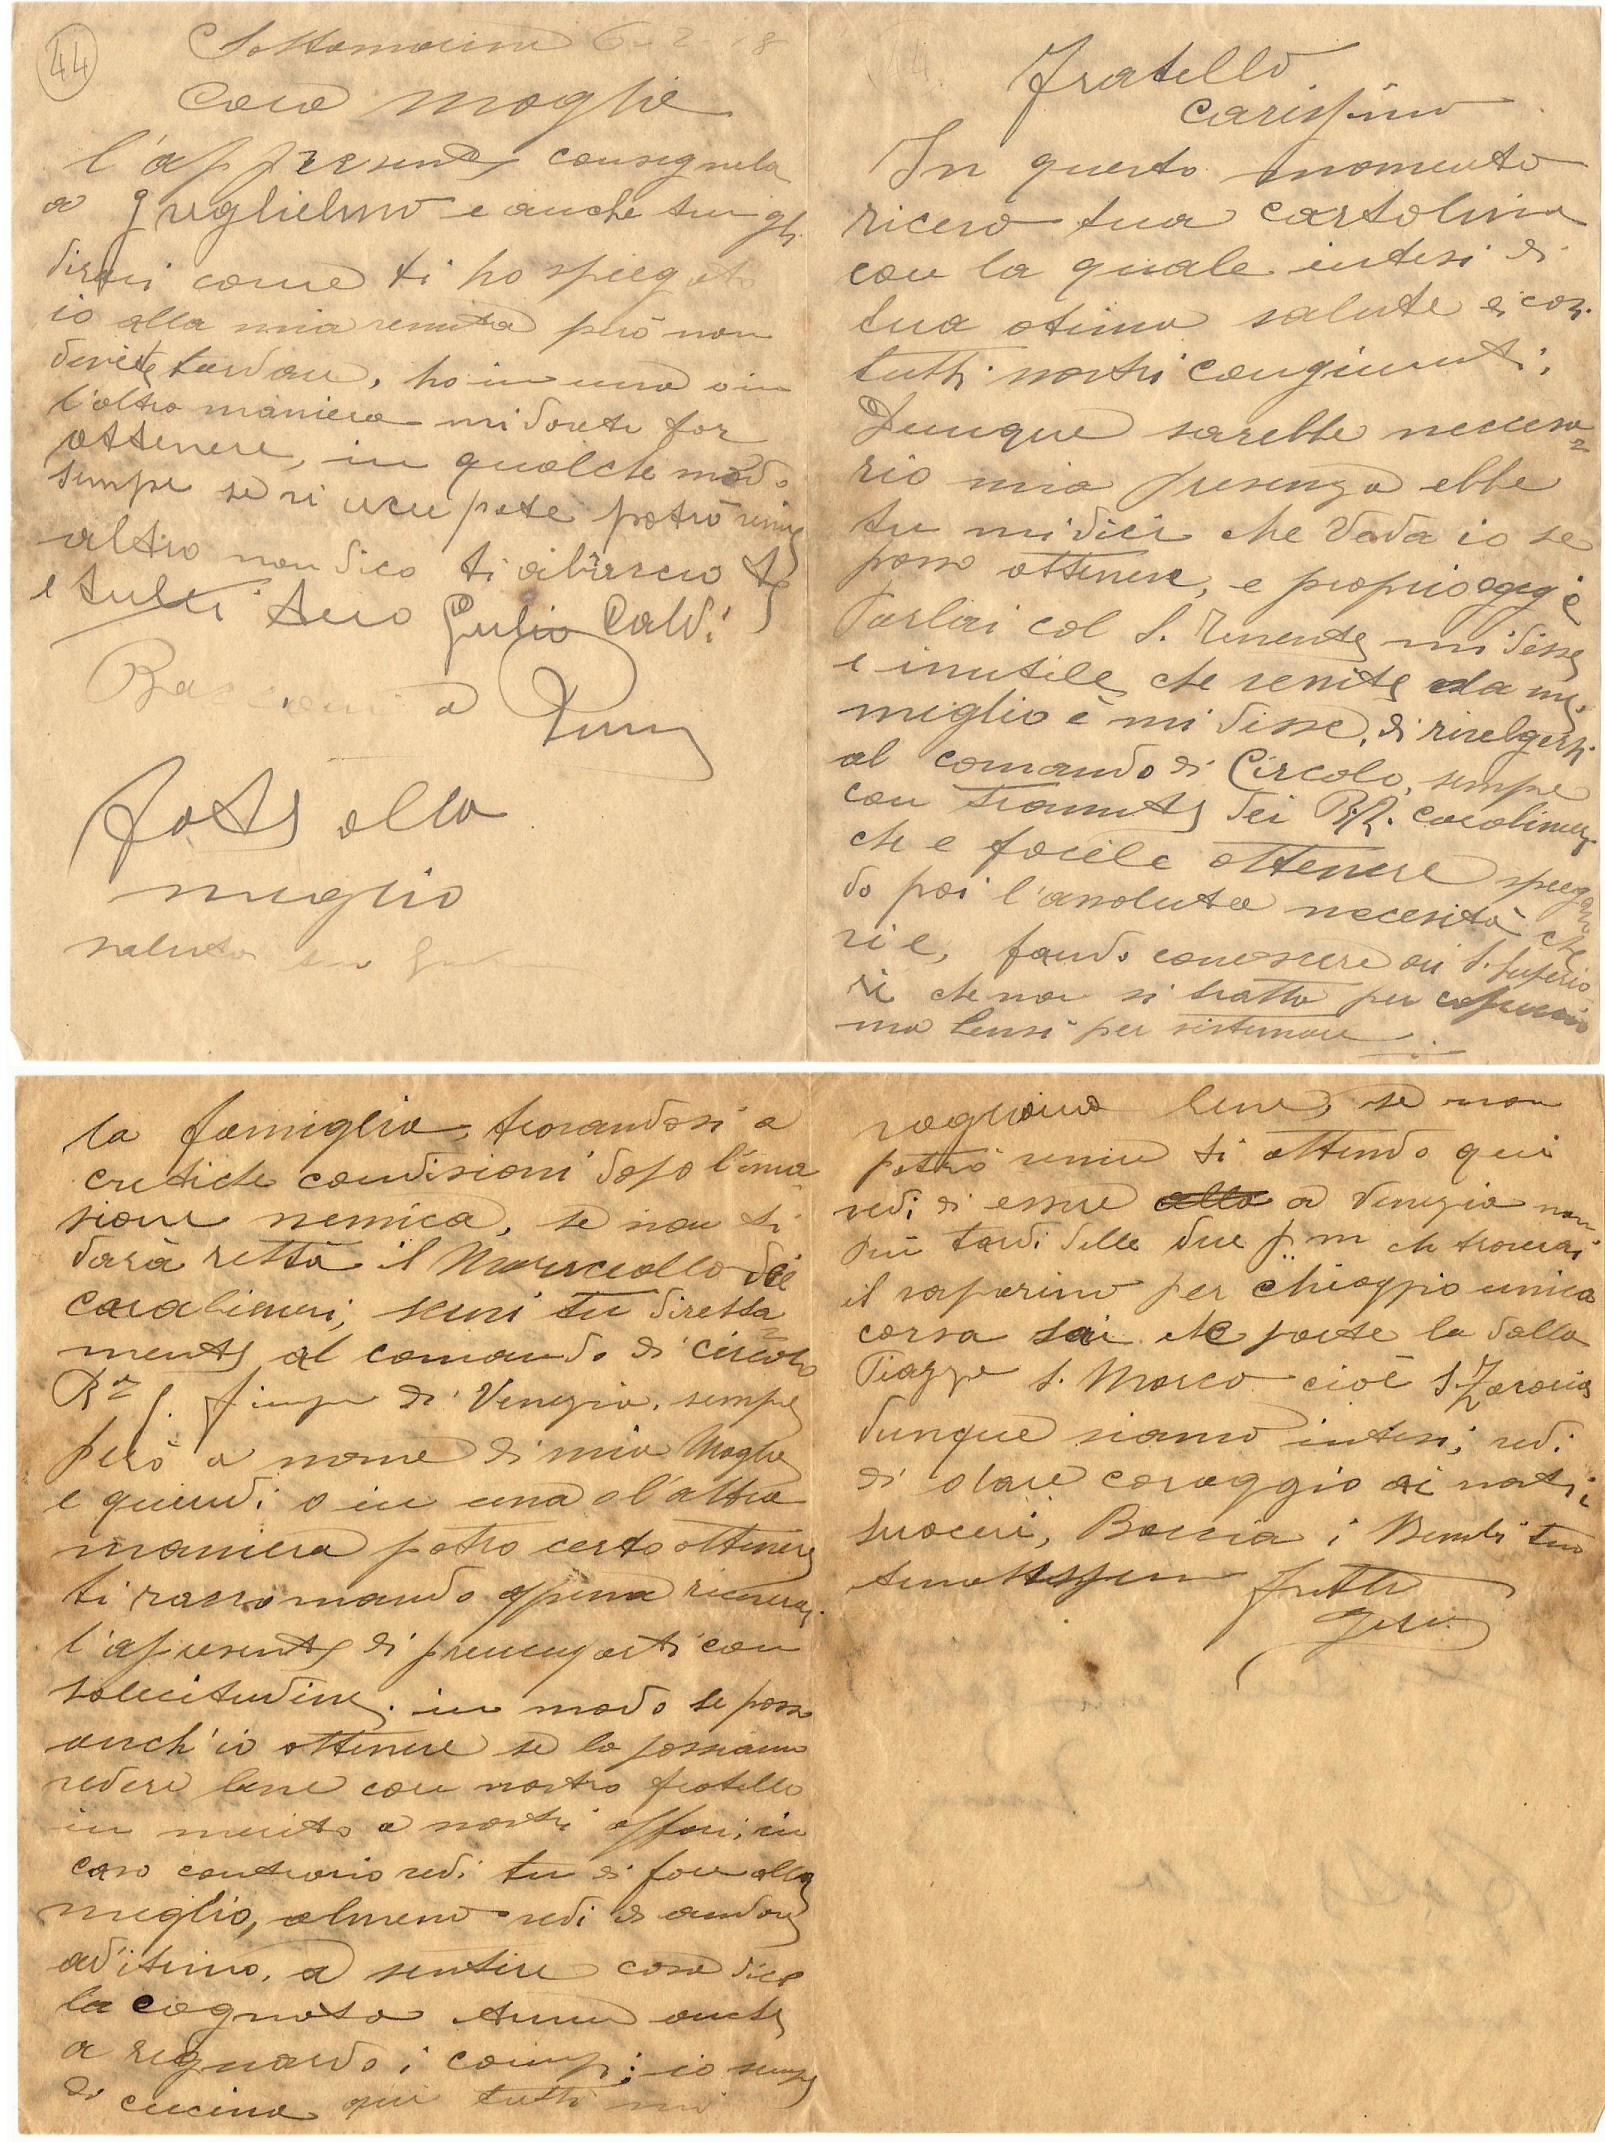 44
Sottomarina 6-2-18
Cara moglie
l'appresente consegnela
a guglielmo e anche tu gli
dirai come ti ho spiegato
io alla mia venuta però non
devite tardare, ho in una o in
l'altra maniera mi dovete far
ottenere, in qualche modo
sempe se vi ucupate potrò venire
altro non dico ti abbraccio te
e tutti tuo Giulio Caldi
a
fate alla
meglio
saluta
Fratello
carissimo
In questo momento
ricevo tua cartolina
con la quale intesi di
tua otima salute e cosi
tutti nostri congiunti,
Dunque sarebbe neccesa=
rio mia presenza ebbe
tu mi dici che vada io se
posso ottenere, e proprio oggi è
Parlai col S. Tenente mi disse
e inutile che venite da me,
meglio è mi disse, di rivolgersi
al comando di Circolo, sempe
con tramite dei R.R. caralinieri
che e facile ottenere spiegan
do poi l'assoluta neccesità che
vi e, fando conoscere ai S. Superio
ri che non si tratta per capriccio
ma bensi per sistemare
la famiglia, trovandosi a
critiche condisioni dopo l'inva
sione nemica, se non ti
darà retta il Maresciallo dei
caralinieri, scrivi tu diretta=
mente al comando di circolo
di Venezia, sempre
però a nome di mia Moglie
e quindi o in una o l'altra
maniera potro certo ottenere
ti raccomando appena riceverai
l'apresente di premurarti con
solecitudine. in modo se posso
anch'io ottenere se la possiamo
vedere bene con nostro fratello
in merito a nostri affari, in
caso contrario vedi tu di fare alla
meglio, almeno vedi di andare
a sentire cosa dice
la cognata anche
a riguardo i campi; io sempre
di cucina qui tutti mi
vogliono bene, se non
potrò venire ti attendo qui
vedi di essere alla a Venezia non
più tardi delle due p.m che troverai
il vaporino per Chioggia unica
corsa sai che parte la dalla
Piazza S. Marco cioè S. Zaccaria
dunque siamo intesi, vedi
di dare coraggio ai nostri
suoceri, Baccia i Bimbi tuo
fratello